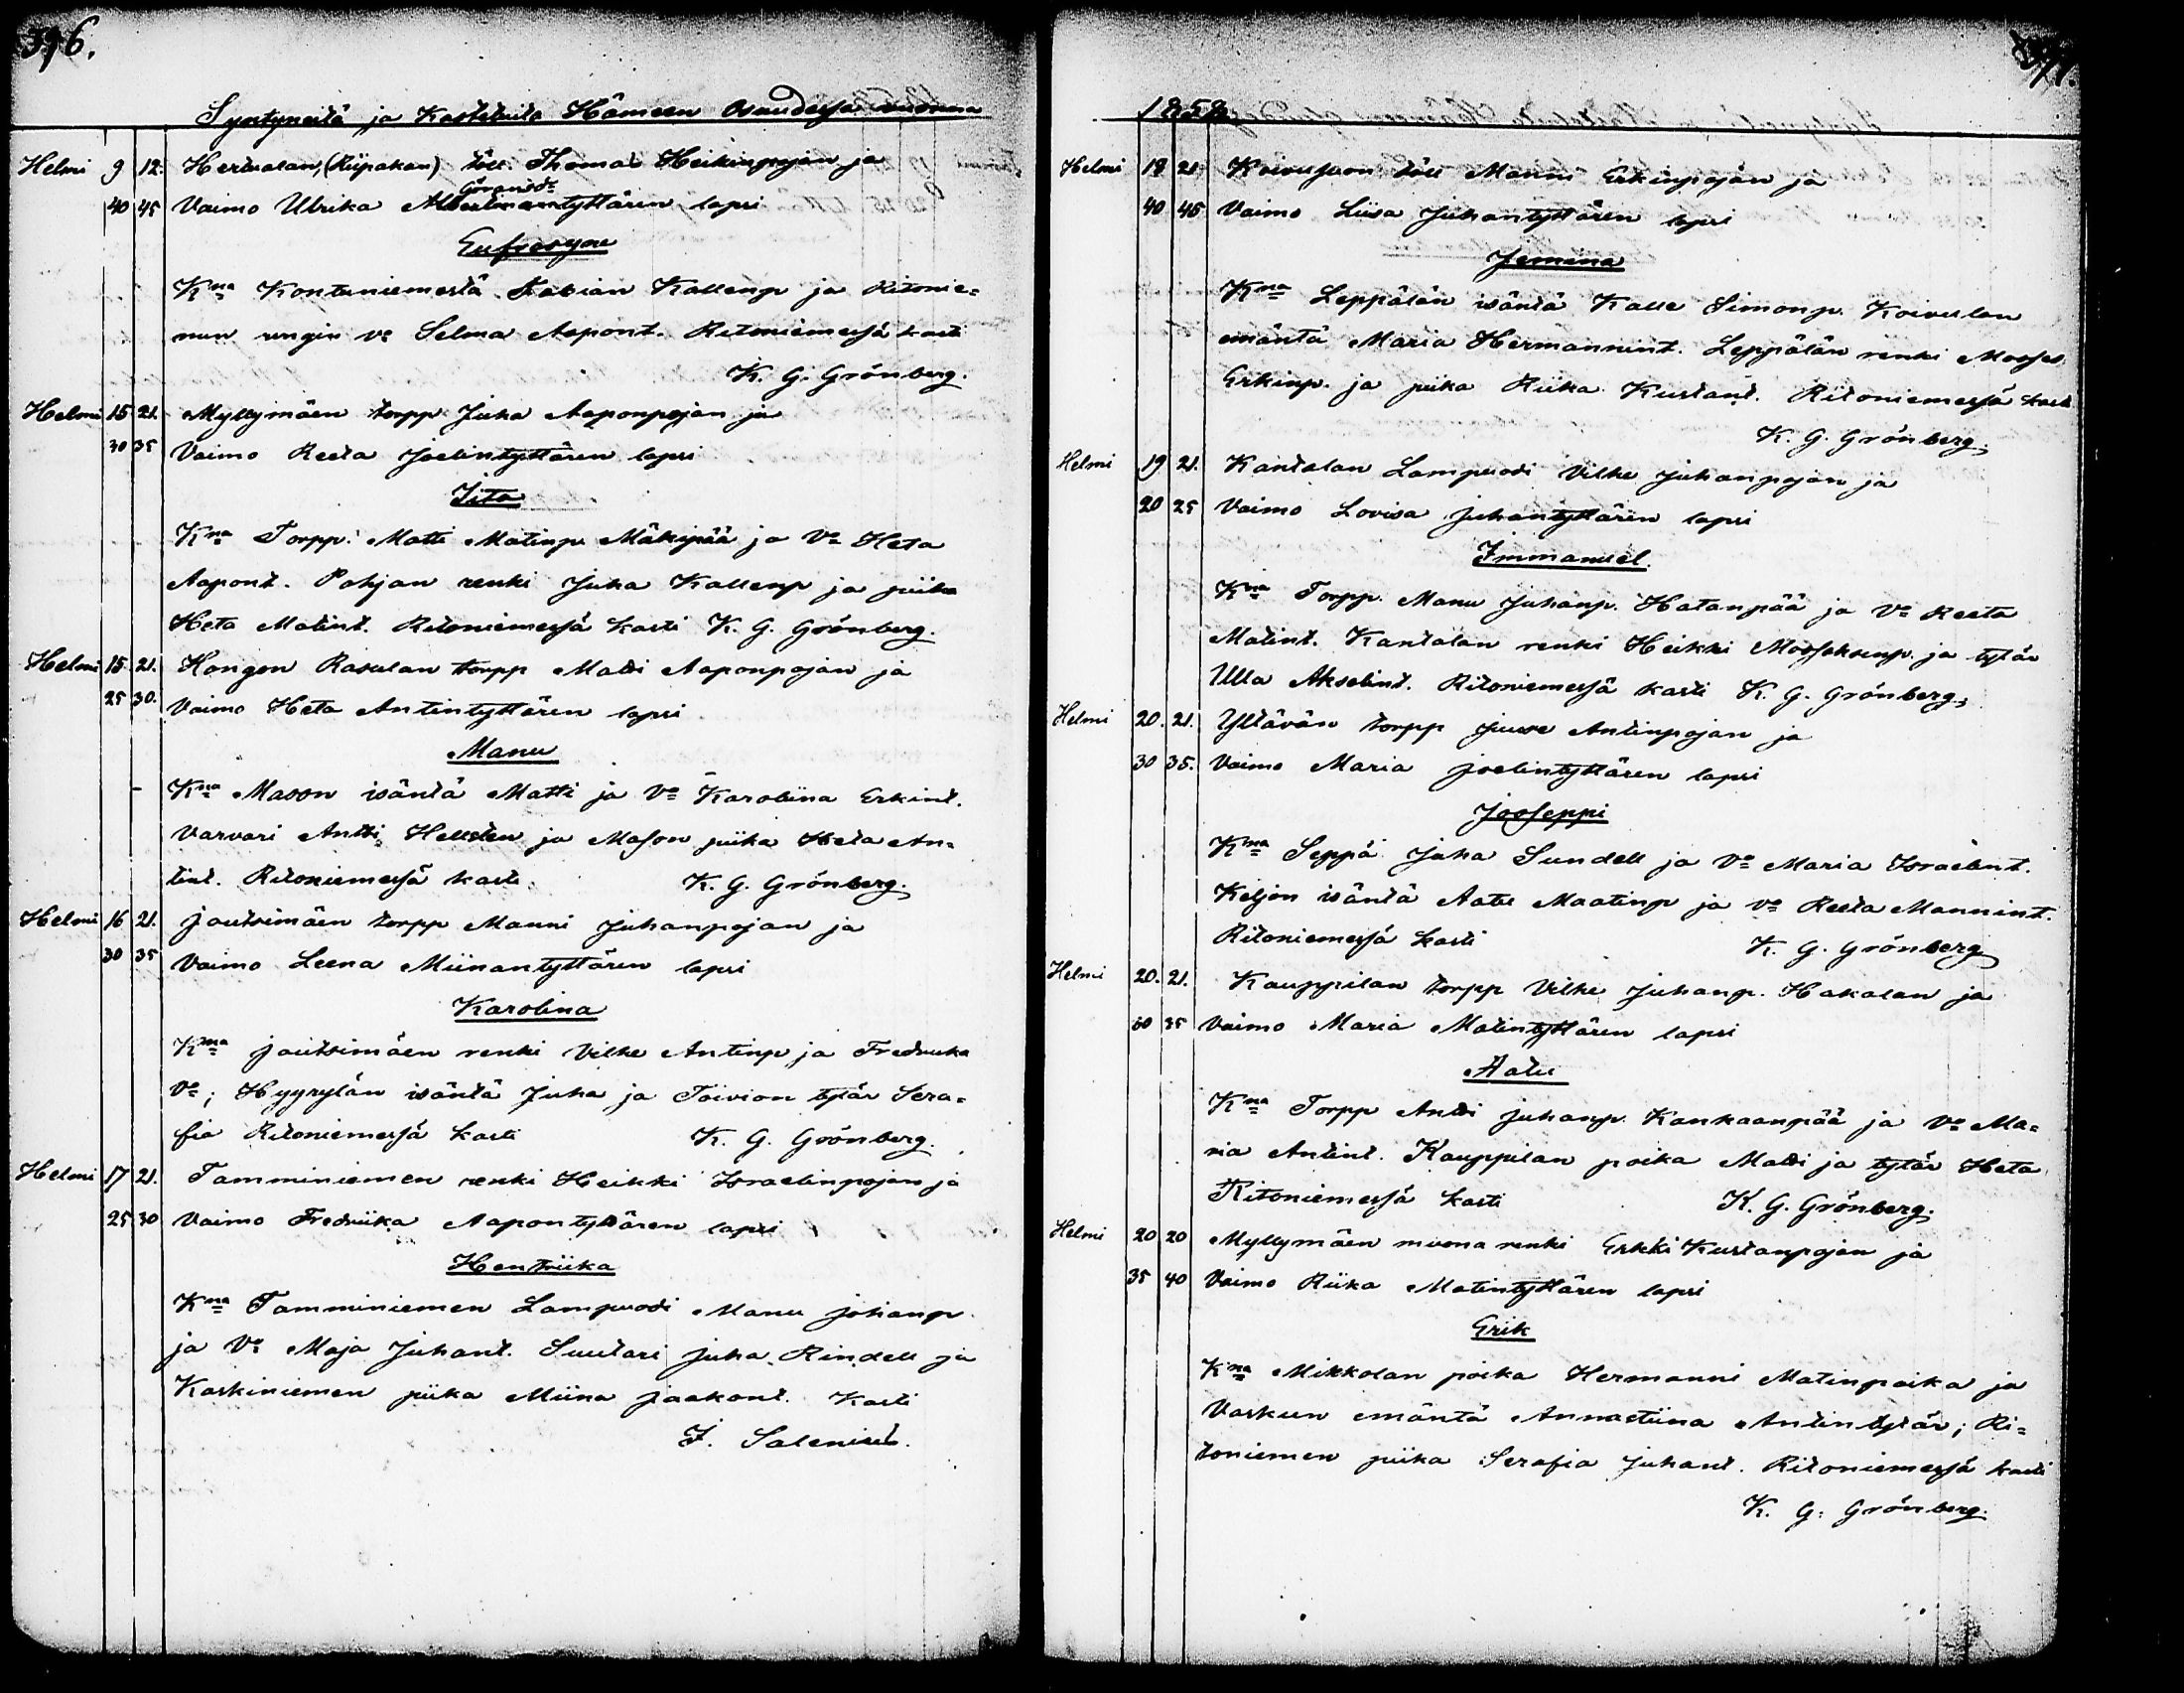 396.
Syntyneitä ja Kastetuita Hämeen osaudessa vuonna
Helmi 9 12. Hertualan, (Riipakan) töll. Thomas Heikinpojan ja
Göransd:r
40 45 Vaimo Ulrika tyttären lapsi
Eufrosyne
Kna Kontuniemestä Fabian Kallenp ja Ritonie=
men rengin vo Selma Aapont. Ritoniemessä kasti
K. G. Grönberg.
Helmi 15 21. Myllymäen torpp Juha Aaponpojan ja
30 35 Vaimo Reeta Joelintyttären lapsi
Iita
Kna Torpp. Matti Matinp. Mäkipää ja Vo Heta
Aapont. Pohjan renki Juha Kallenp ja piika
Heta Matint. Ritoniemessä kasti K. G. Grönberg
Helmi 15. 21. Hongon Rasulan torpp Matti Aaponpojan ja
25 30. Vaimo Heta Antintyttären lapsi
Manu
Kna Mason isäntä Matti ja Vo Karoliina Erkint.
Varvari Antti Hellsten ja Mason piika Heta An=
tint. Ritoniemessä kasti K. G. Grönberg.
Helmi 16 21. Joutsimäen torpp Manni Juhanpojan ja
30 35 Vaimo Leena Miinantyttären lapsi
Karolina
Kna Joutsimäen renki Vilke Antinp ja Fredriika
Vo; Hyyrylän isäntä Juha ja Toivion tytär Sera=
fia Ritoniemessä kasti K. G. Grönberg.
Helmi 17 21. Tamminiemen renki Heikki Israelinpojan ja
25 30 Vaimo Fredriika Aapontyttären lapsi
Hentriika
Kna Tamminiemen Lampuodi Manu Johanp.
ja Vo Maja Juhant. Suutari Juha Rindell ja
Koskiniemen piika Miina Jaakont. Kasti
F. Salenius.
397.
1858.
Helmi 18 21. Koivuson töll Manni Erkinpojan ja
40 45 Vaimo Liisa Juhantyttären lapsi
Jemina
Kna Leppälän isäntä Kalle Simonp. Koivulan
emäntä Maria Hermannint. Leppälän renki Mooses
Erkinp. ja piika Riika Kustant. Ritoniemessä kasti
K. G. Grönberg.
Helmi 19 21. Kantalan Lampuodi Vilke Juhanpojan ja
20 25 Vaimo Lovisa Juhantyttären lapsi
Immanuel.
Kna Torpp. Manu Juhanp. Hatanpää ja Vo Reeta
Matint. Kantalan renki Heikki Mooseksenp. ja tytär
Ulla Akselint. Ritoniemessä kasti K. G. Grönberg.
Helmi 20. 21. Yltävän torpp Juuse Antinpojan ja
30 35. Vaimo Maria Joelintyttären lapsi
Jooseppi
Kna Seppä Juha Sundell ja Vo Maria Israelint.
Keljon isäntä Aatu Maatinp ja vo Reeta Mannint.
Ritoniemessä kasti K. G. Grönberg
Helmi 20. 21. Kauppilan torpp Vilke Juhanp. Hakalan ja
30 35 Vaimo Maria Matintyttären lapsi
Aatu
Kna Torpp Antti Juhanp. Kankaanpää ja Vo Ma=
ria Antint. Kauppilan poika Matti ja tytär Heta
Ritoniemessä kasti K. G. Grönberg.
Helmi 20 20 Myllymäen muona renki Erkki Kustanpojan ja
35 40 Vaimo Riika Matintyttären lapsi
Erik
Kna Mikkolan poika Hermanni Matinpoika ja
Vaskuun emäntä Annastiina Antintytär; Ri=
toniemen piika Serafia Juhant. Ritoniemessä kasti
K. G. Grönberg.